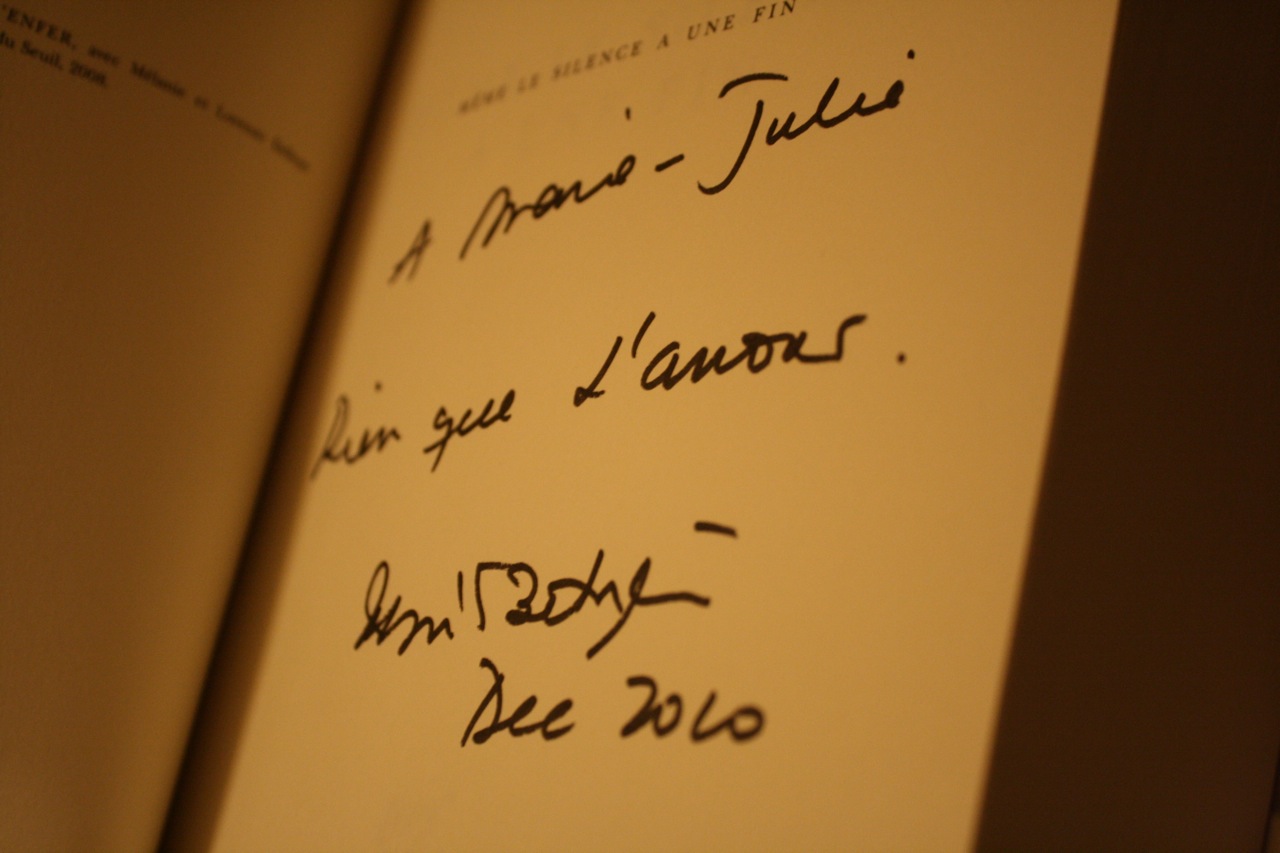 'ENFER, avec Mélanie et Lorenzo
du Seuil, 2008.
MÊME LE SILENCE A UNE FIN
A Marie-Julie
Rien que L'amour.
Betancourt
Dec 2010